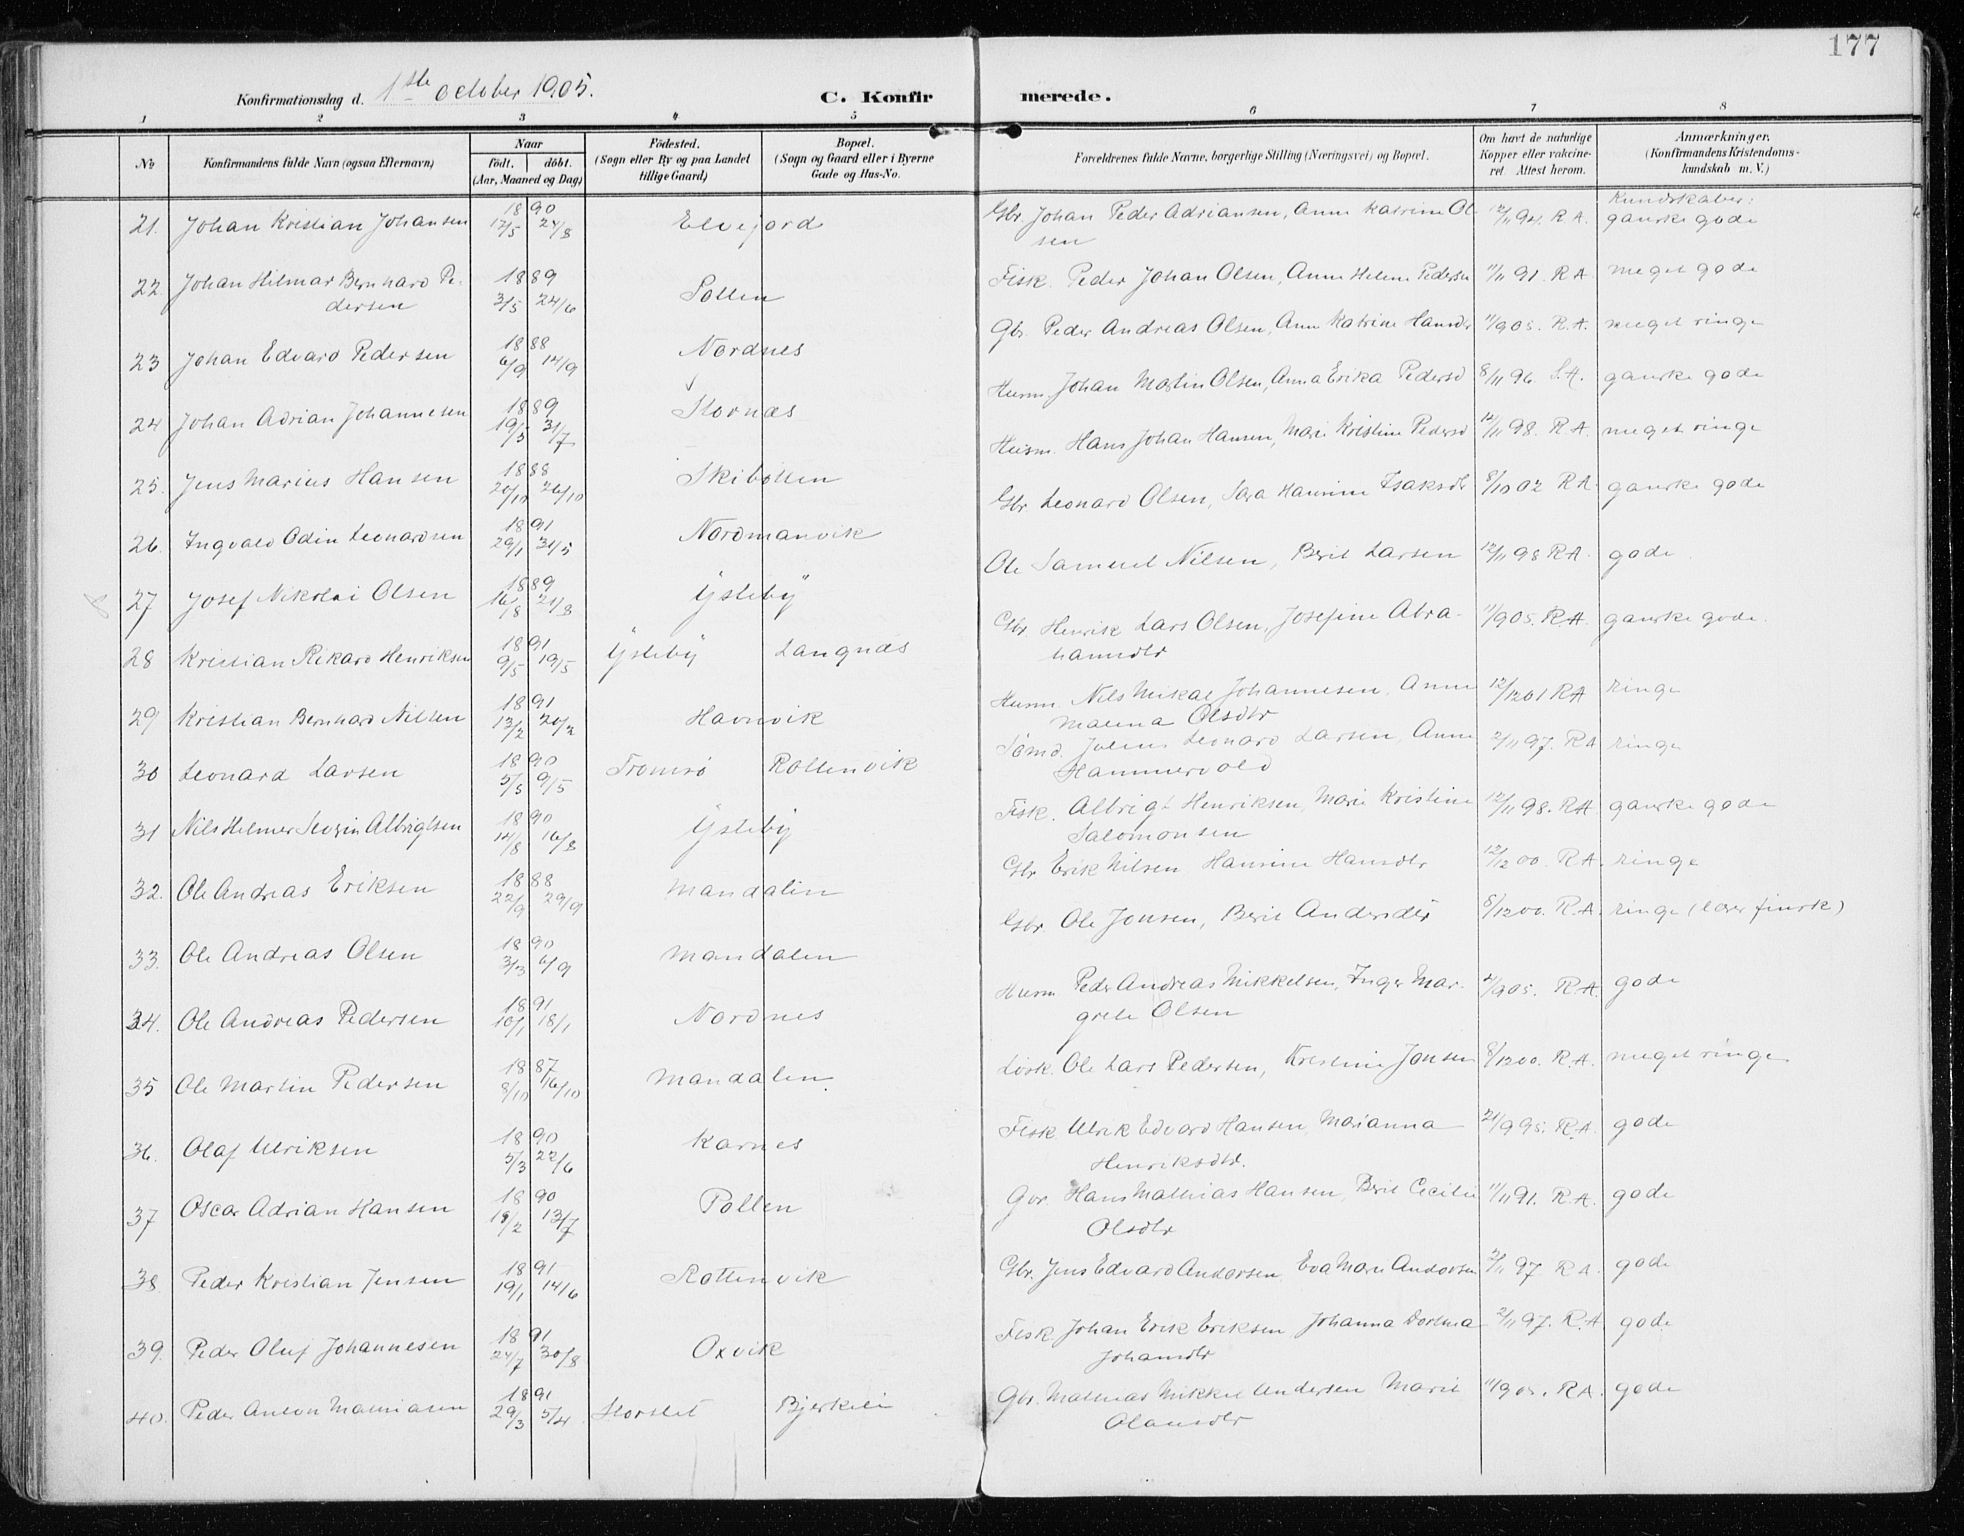 177
Konfirmationsdag d. 1ste october 1905.
C. Konfirmerede.
1 2 3 4 5 6 7 8
No
Konfirmandens fulde Navn (ogsaa Efternavn)
Naar
født. døbt.
(Aar, Maaned og Dag)
Fødested.
(Sogn eller By og paa Landet
tillige Gaard)
Bopæl.
(Sogn og Gaard eller i Byerne
Gade og Hus-No.
Forældrenes fulde Navne, borgerlige Stilling (Næringsvei) og Bopæl.
Om havt de naturlige
Kopper eller vakcine-
ret. Attest herom.
Anmærkninger.
(Konfirmandens Kristendoms-
kundskab m. V.)
Kundskaber:
21. Johan Kristian Johansen 1890 12/5 24/8 Elvejord Gbr. Johan Peder Adriansen, Anne Katrine Ol- 12/11 94. R.A. ganske gode
sen
22. Johan Hilmar Bernhard Pe- 1889 3/5 24/6 Pollen Fisk. Peder Johan Olsen, Anne Helene Pedersen 11/11 91. R.A. meget gode
dersen
23 Johan Edvard Pedersen 1888 6/9 14/9 Nordnes Gbr. Peder Andreas Olsen, Ane Katrine Hansdr 11/9 05. R.A. meget ringe
24 Johan Adrian Johannesen 1889 19/5 31/7 Stornæs Husm. Johan Martin Olsen, Anna Erika Pedersd 8/11 96. S.A. ganske gode
25. Jens Marius Hansen 1888 20/10 26/10 Skibotten Husm. Hans Johan Hansen, Marie Kristine Pedersd 12/11 98. R.A. meget ringe
26. Ingvald Odin Leonardsen 1891 29/1 31/5 Nordmanvik Gbr. Leonard Olsen, Sara Hansine Isaksdtr 8/10 02 R.A. ganske gode
27 Josef Nikolai Olsen 1889 16/8 21/8 Ysteby Ole Samuel Nilsen, Berit Larsen 12/11 98 R.A. gode
28 Kristian Rikard Henriksen 1891 9/5 19/5 Ysteby Langnæs Gbr. Henrik Lars Olsen, Josefine Abra- 11/9 05. R.A. ganske gode.
hamsdtr
29 Kristian Bernhard Nilsen 1891 13/2 20/2 Havnvik Husm. Nils Mikal Johannesen, Anne 12/12 01 R.A ringe
Malena Olsdtr
30 Leonard Larsen 1890 5/5 9/5 Tromsø Rottenvik Sømd. Julius Leonard Larsen, Anne 2/11 97. R.A ringe
Hammervold
31 Nils Helmer Severin Albrigtsen 1890 14/8 16/8 Ysteby Fisk. Albrigt Henriksen, Marie Kristine 12/11 98. R.A ganske gode
Salomonsen
32. Ole Andreas Eriksen 1888 22/9 29/9 Mandalen Gbr. Erik Nilsen, Hansine Hansdtr 12/12 00. R.A. ringe
33. Ole Andreas Olsen 1890 3/3 6/9 Mandalen Gbr. Ole Jonsen, Berit Andersdtr 8/12 00. R.A. ringe (læser finsk)
34. Ole Andreas Pedersen 1891 10/1 18/1 Nordnes Husm Peder Andreas Mikkelsen, Inger Mar- 2/9 05. R.A. gode
grete Olsen
35 Ole Martin Pedersen 1887 8/10 16/10 Mandalen. Løsk. Ole Lars Pedersen, Kristine Jonsen 8/12 00. R.A. meget ringe
36. Olaf Ulriksen 1890 5/3 22/6 Karnes Fisk. Ulrik Edvard Hansen, Marianna 21/9 95. R.A. gode
Henriksdtr.
37 Oscar Adrian Hansen 1890 18/2 13/7 Pollen Gbr. Hans Mathias Hansen, Berit Cecilie 11/11 91. R.A. gode
Olsdtr
38 Peder Kristian Jensen 1891 19/1 14/6 Rottenvik Gbr. Jens Edvard Andersen, Eva Marie Andersen 2/11 97 R.A. gode
39. Peder Oluf Johannesen 1891 24/7 30/8 Oxvik Fisk. Johan Erik Eriksen, Johanna Dortea 2/11 97. R.A. gode
Johansdtr
40. Peder Anton Mathiasen 1891 29/3 5/4 Storslet Bjerkeli Gbr. Mathias Mikkel Andersen Marit 11/9 05. R.A. gode
Olausdtr